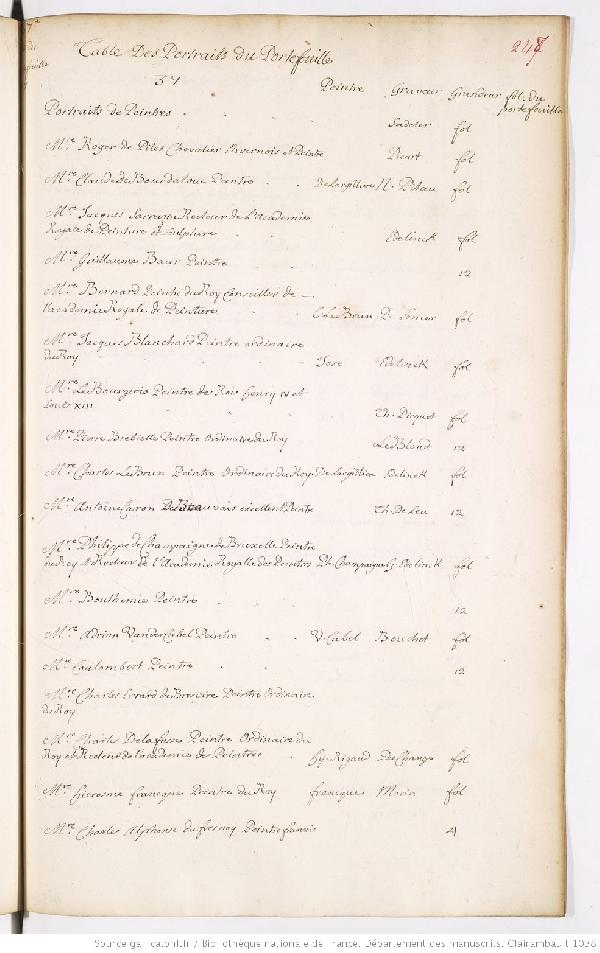 247
Table Des Portraits du Portefeuille
57
Peintre Graveur Grandeur fol. du portefeuille
Portraits de Peintres Sadeler fol
Mre Roger de Piles Chevalier Peintre Picart fol
Mre Claude de Bourdaloue Peintre De Largilliere Pitau fol
Mre Jacques Recteur de L'Academie
Royale de Peinture et Sculpture Edelinck fol
Mre Guillaume Baur Peintre 12
Mre Bernard Peintre du Roy Conseiller de
l'academie Royale de Peinture C Le Brun P. Somer fol
Mre Jacques Blanchard Peintre ordinaire
du Roy Jose Edelinck fol
Mre Le Bourgeois Peintre des Rois henry IV et
Louis XIII Th. Picquot fol
Mre Pierre Brebiette Peintre Ordinaire du Roy Le Blond 12
Mre Charles Le Brun Peintre Ordinaire du Roy De Largilliere Edelinck fol
Mre Antoine Caron De Beauvais excellent Peintre Th. De Leu 12
Mre Philippe de Champaigne de Bruxelle Peintre
du Roy et Recteur de L'Academie Royalle des Peintres Ph. Champaigne G. Edelinck fol
Mre Bouthemie Peintre 12
Mre Adrian VanderCabel Peintre V. Cabel Bouchet fol
Mre Coulombert Peintre 12
Mre Charles Errard de Peintre Ordinaire
du Roy
Mre Charles Delafosse Peintre Ordinaire du
Roy et Recteur de l'academie de Peintres hy. Rigaud Duchange fol
Mre hierosme francque Peintre du Roy francque Morin fol
Mre Charles Alphonse du fresnoy Peintre 4
Source gallica.bnf.fr / Bibliothèque nationale de France. Département des manuscrits. Clairambault 1038